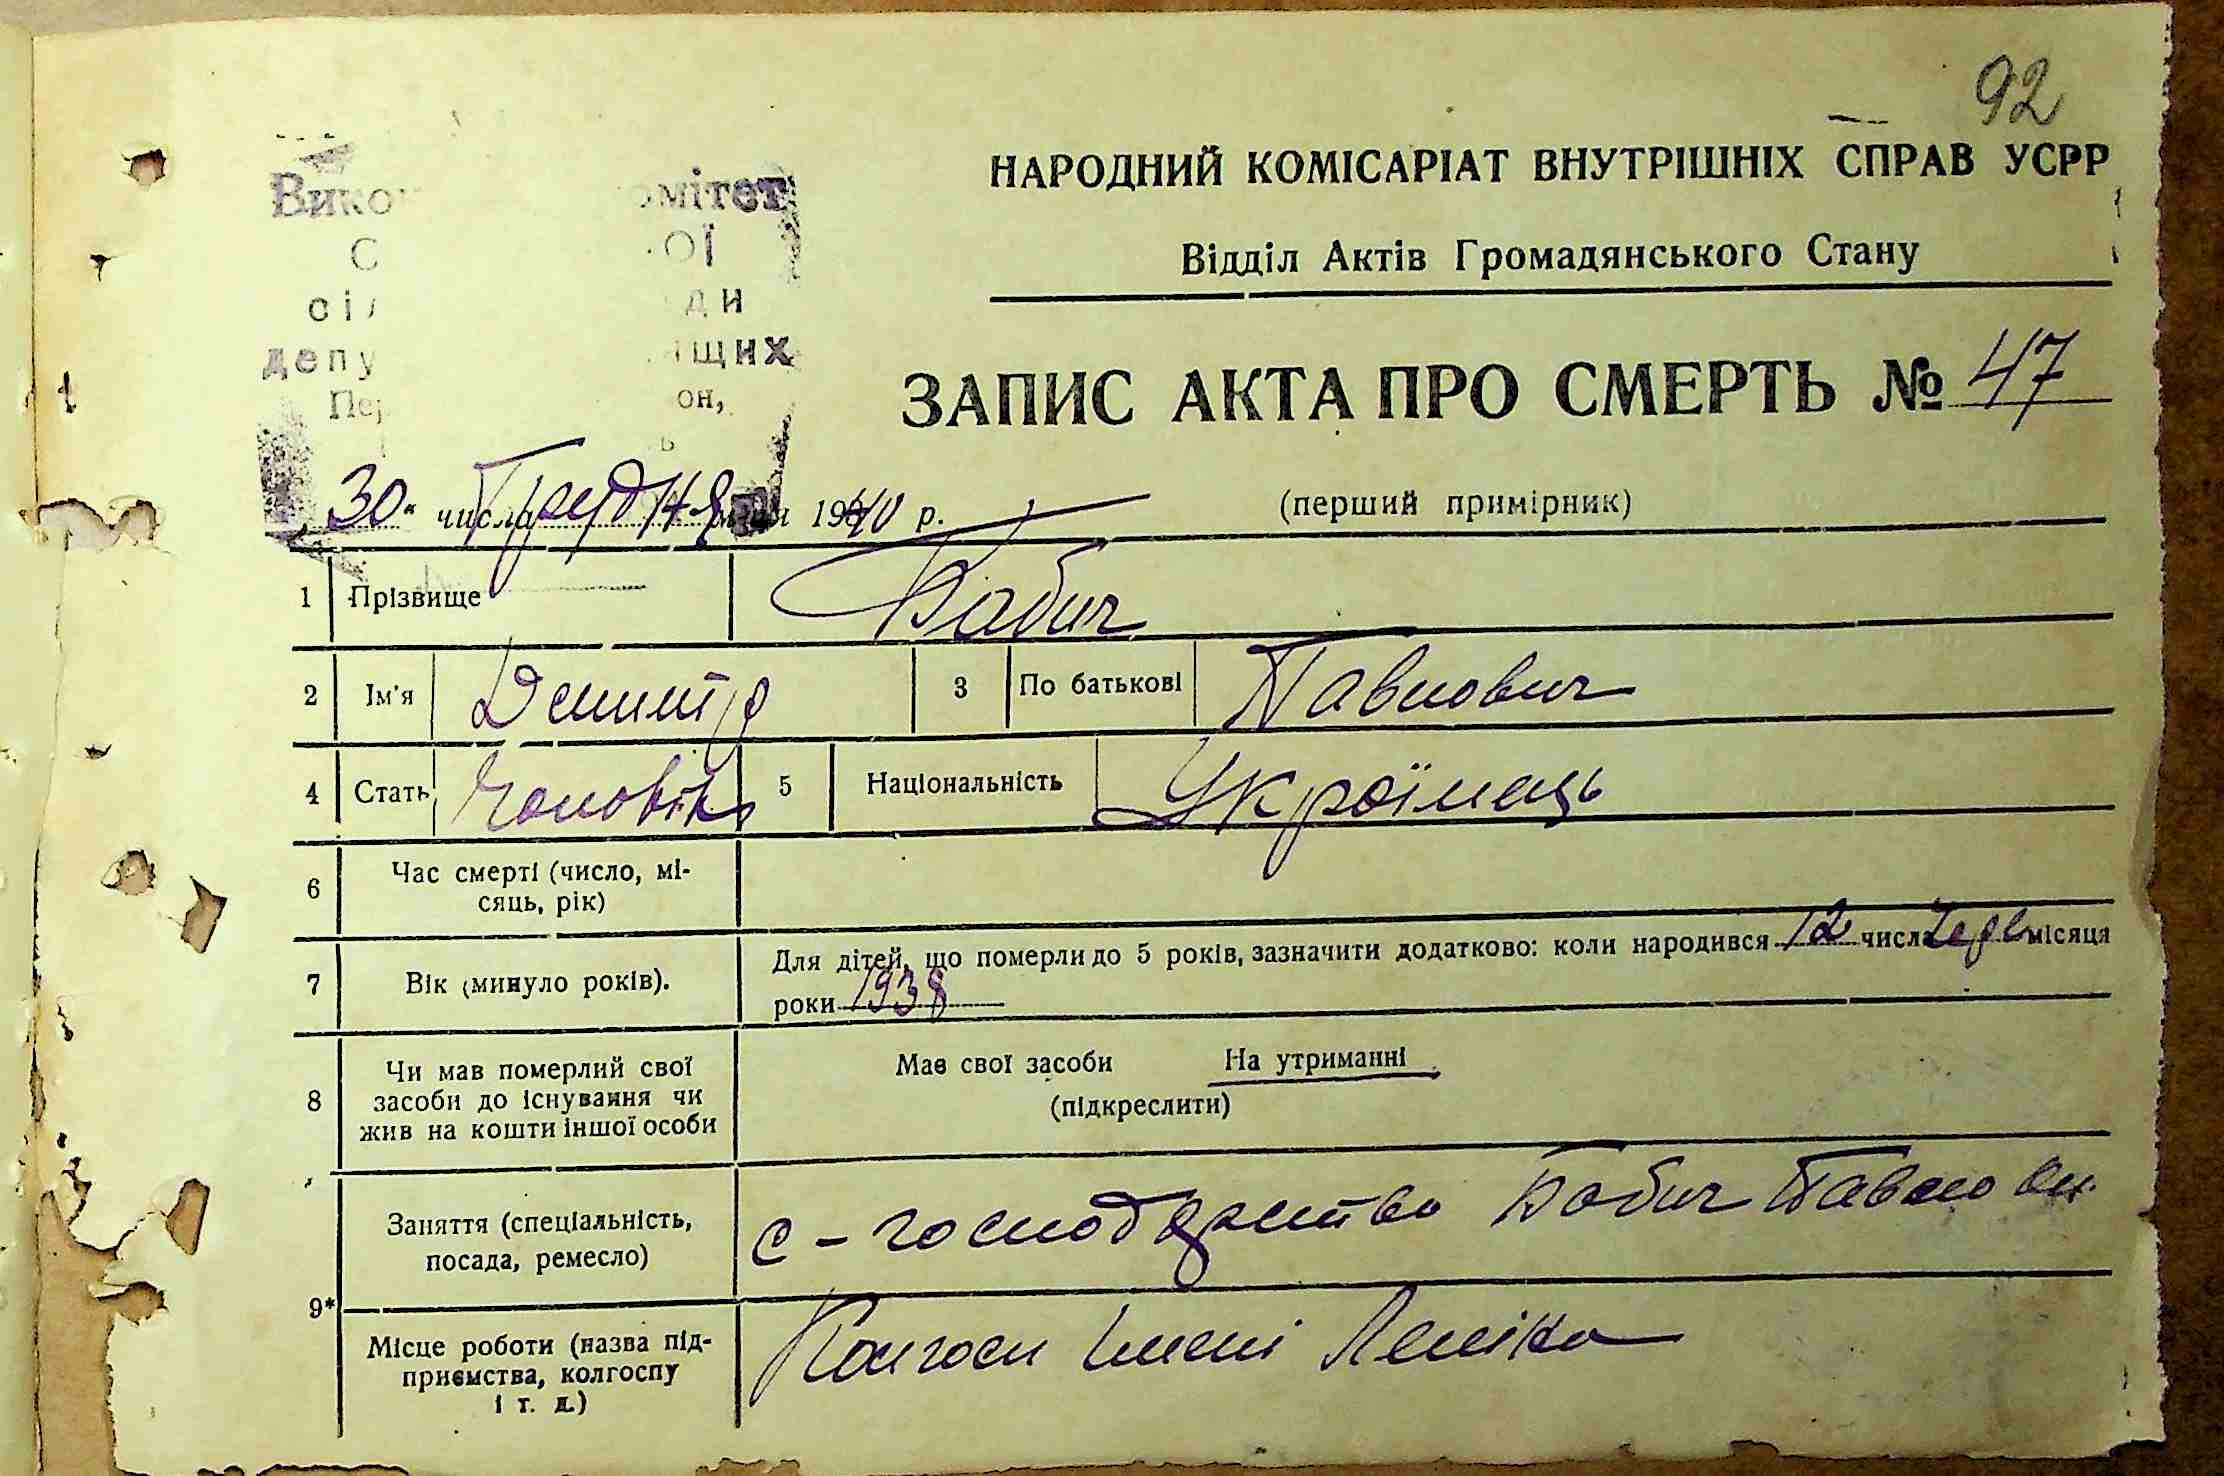 92
НАРОДНИЙ КОМІСАРІАТ ВНУТРІШНІХ СПРАВ УСРР
Відділ Актів Громадянського Стану
ЗАПИС АКТА ПРО СМЕРТЬ № 47
30 числа Грудня 1940 р.
(перший примірник)
1 Прізвище Бабич
2 Ім'я Демитр 3 По батькові Павлович
4 Стать Чоловік 5 Національність Українець
6 Час смерті (число, мі-
сяць, рік)
7 Вік (минуло років). Для дітей, що померли до 5 років, зазначити додатково: коли народився 12 числа місяця
роки 1938
8 Чи мав померлий свої
засоби до існування чи
жив на кошти іншої особи
Має свої засоби На утриманні
(підкреслити)
9*
Заняття (спеціальність,
посада, ремесло)
с-господарство Бабич Павло
Місце роботи (назва під-
приємства, колгоспу
і т. д.)
Колгосп Імені Леніна